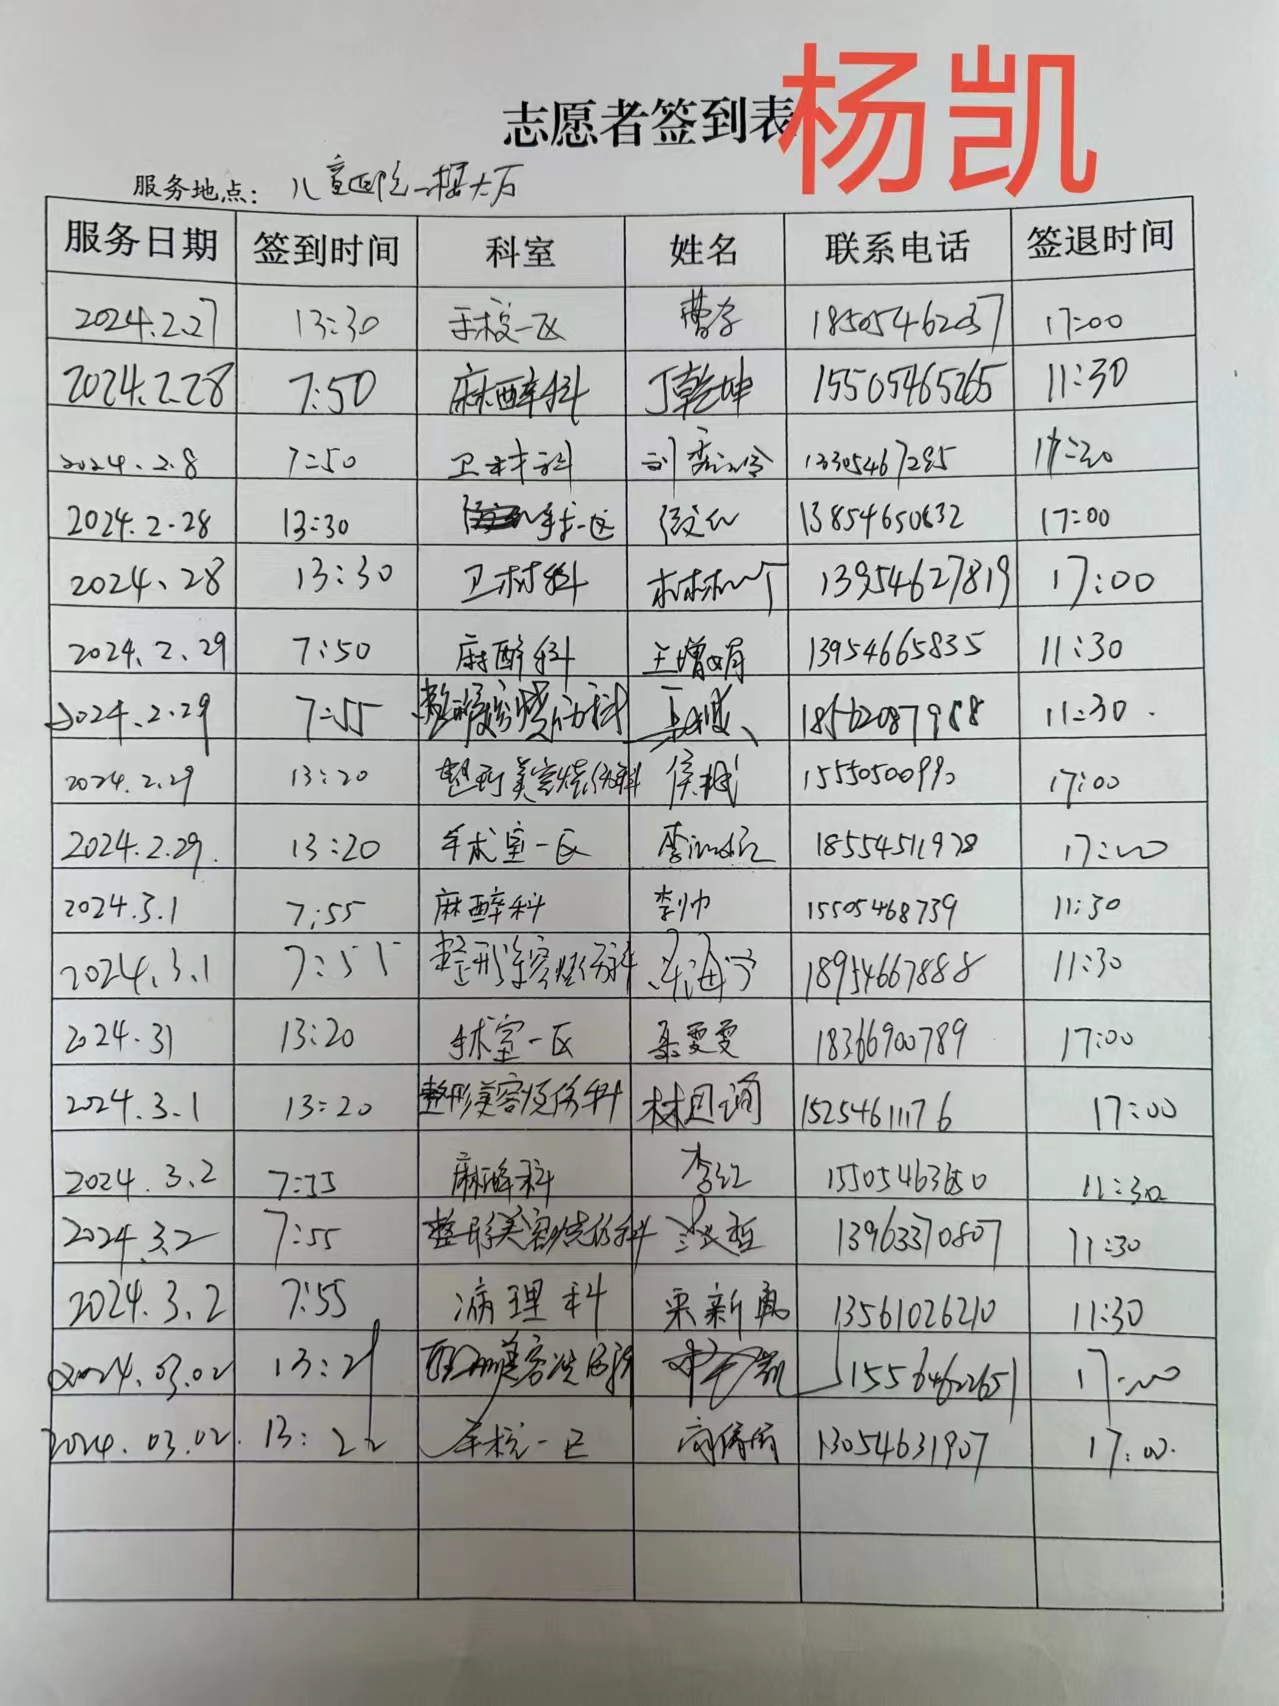 志愿者签到表 杨凯
服务地点：儿童医院一楼大厅
服务日期 签到时间 科室 姓名 联系电话 签退时间
2024.2.27 13:30 一区 18505462037 17:00
2024.2.28 7:50 麻醉科 丁乾坤 15505465265 11:30
2024.2.8 7:50 卫材科 刘 13305467285
2024.2.28 13:30 手术一区 17:00
2024.28 13:30 卫材科 13954627819 17:00
2024.2.29 7:50 麻醉科 王增娟 13954665835 11:30
2024.2.29 7:55 11:30
2024.2.29 13:20 整形美容烧伤科 侯 17:00
2024.2.29. 13:20 手术室一区 李 18554511978 17:00
2024.3.1 7:55 麻醉科 李帅 15505468739 11:30
2024.3.1 7:55 整形美容烧伤科 18954667888 11:30
2024.31 13:20 手术室一区 聂雯雯 18366900789 17:00
2024.3.1 13:20 整形美容烧伤科 15254611176 17:00
2024.3.2 7:55 麻醉科 李红 15505463650 11:30
2024.3.2 7:55 整形美容烧伤科 13963370807 11:30
2024.3.2 7:55 病理科 新 13561026210 11:30
2024.03.02 13:21 凯 17:00
2024.03.02. 13:22 一区 13054631907 17:00.